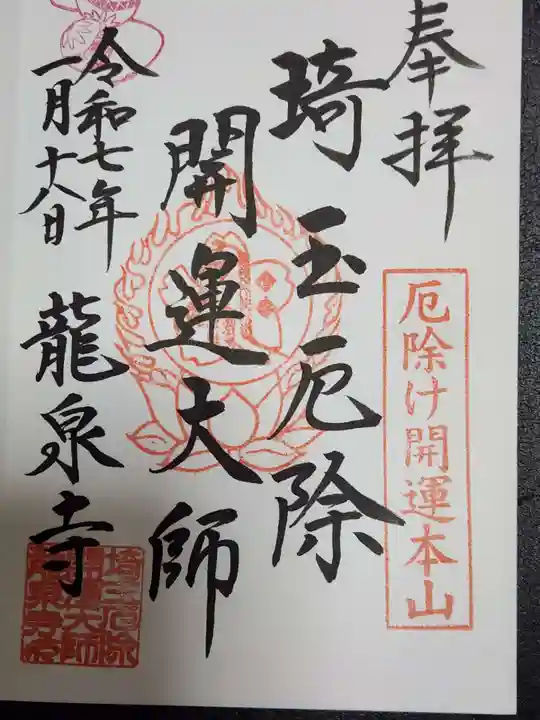 奉拝
厄除け開運本山
琦玉厄除
開運大師
令和七年
一月十八日
龍泉寺
埼玉厄除
開運大師